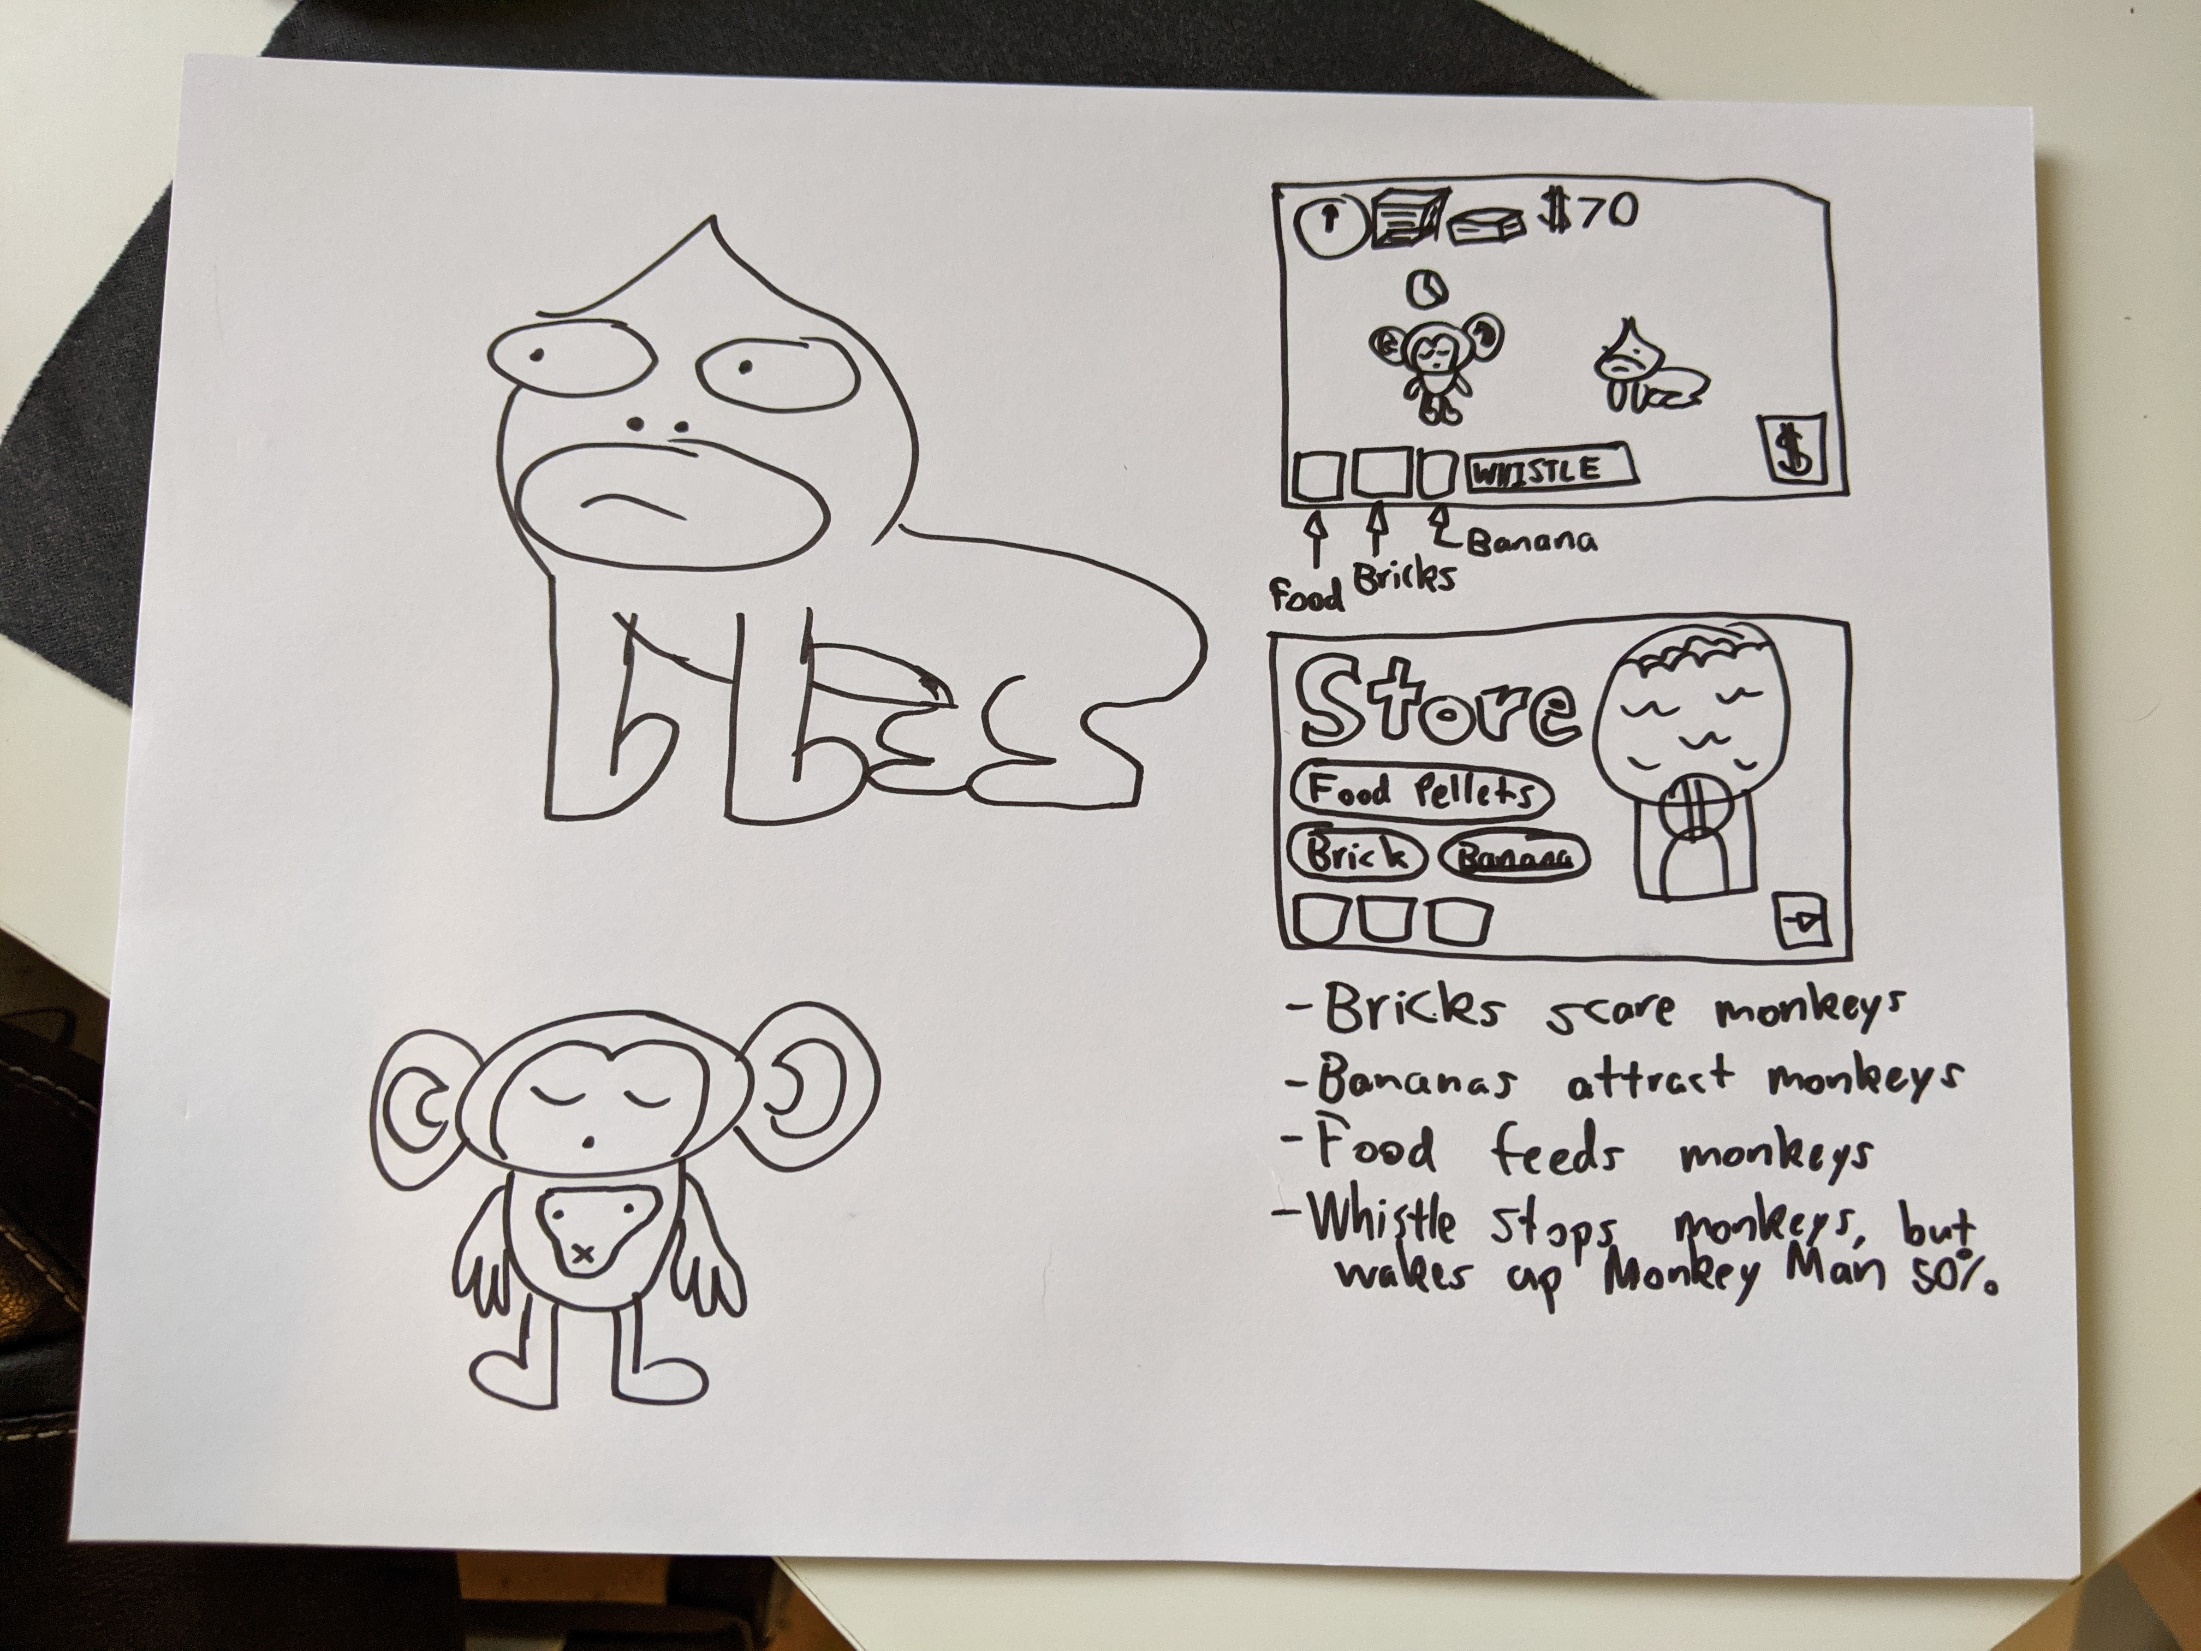 $70
WHISTLE
$
Banana
Bricks
Food
Store
Food Pellets
Brick
Banana
- Bricks scare monkeys
- Bananas attract monkeys
- Food feeds monkeys
- Whistle stops monkeys, but
wakes up Monkey Man 50%